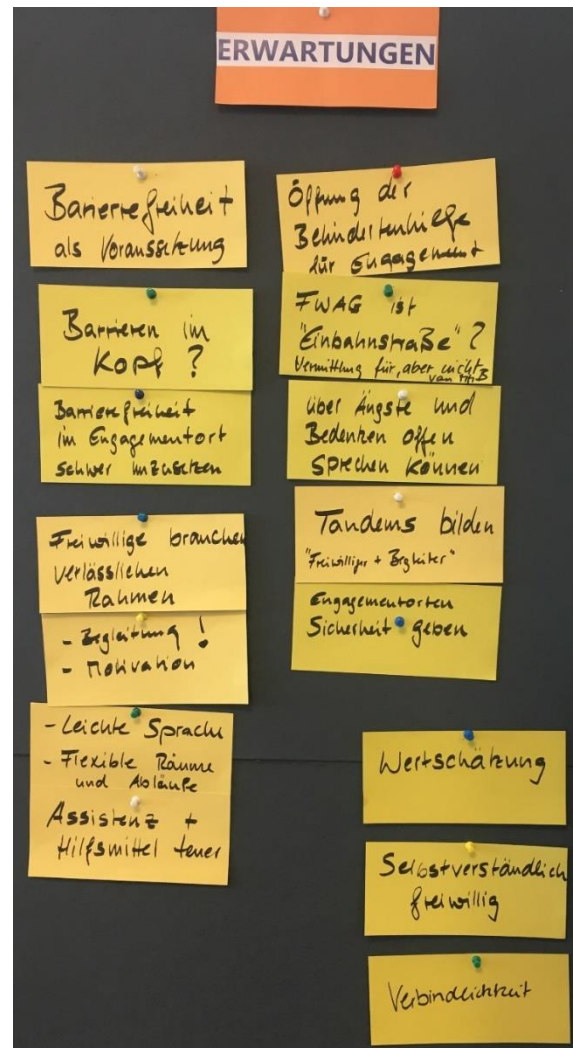 ERWARTUNGEN
Barrierefreiheit
als Voraussetzung
Barrieren im
Kopf?
Barrierefreiheit
im Engagementort
schwer umzusetzen
Freiwillige brauchen
verlässlichen
Rahmen
- Begleitung!
- Motivation
- Leichte Sprache
- Flexible Räume
und Abläufe
Assistenz +
Hilfsmittel teuer
Öffnung der
Behindertenhilfe
für Engagement
FWAG ist
"Einbahnstraße"?
Vermittlung für, aber nicht
von MmB
über Ängste und
Bedenken offen
sprechen können
Tandems bilden
"Freiwilliger + Begleiter"
Engagementorten
Sicherheit geben
Wertschätzung
Selbstverständlich
freiwillig
Verbindlichkeit